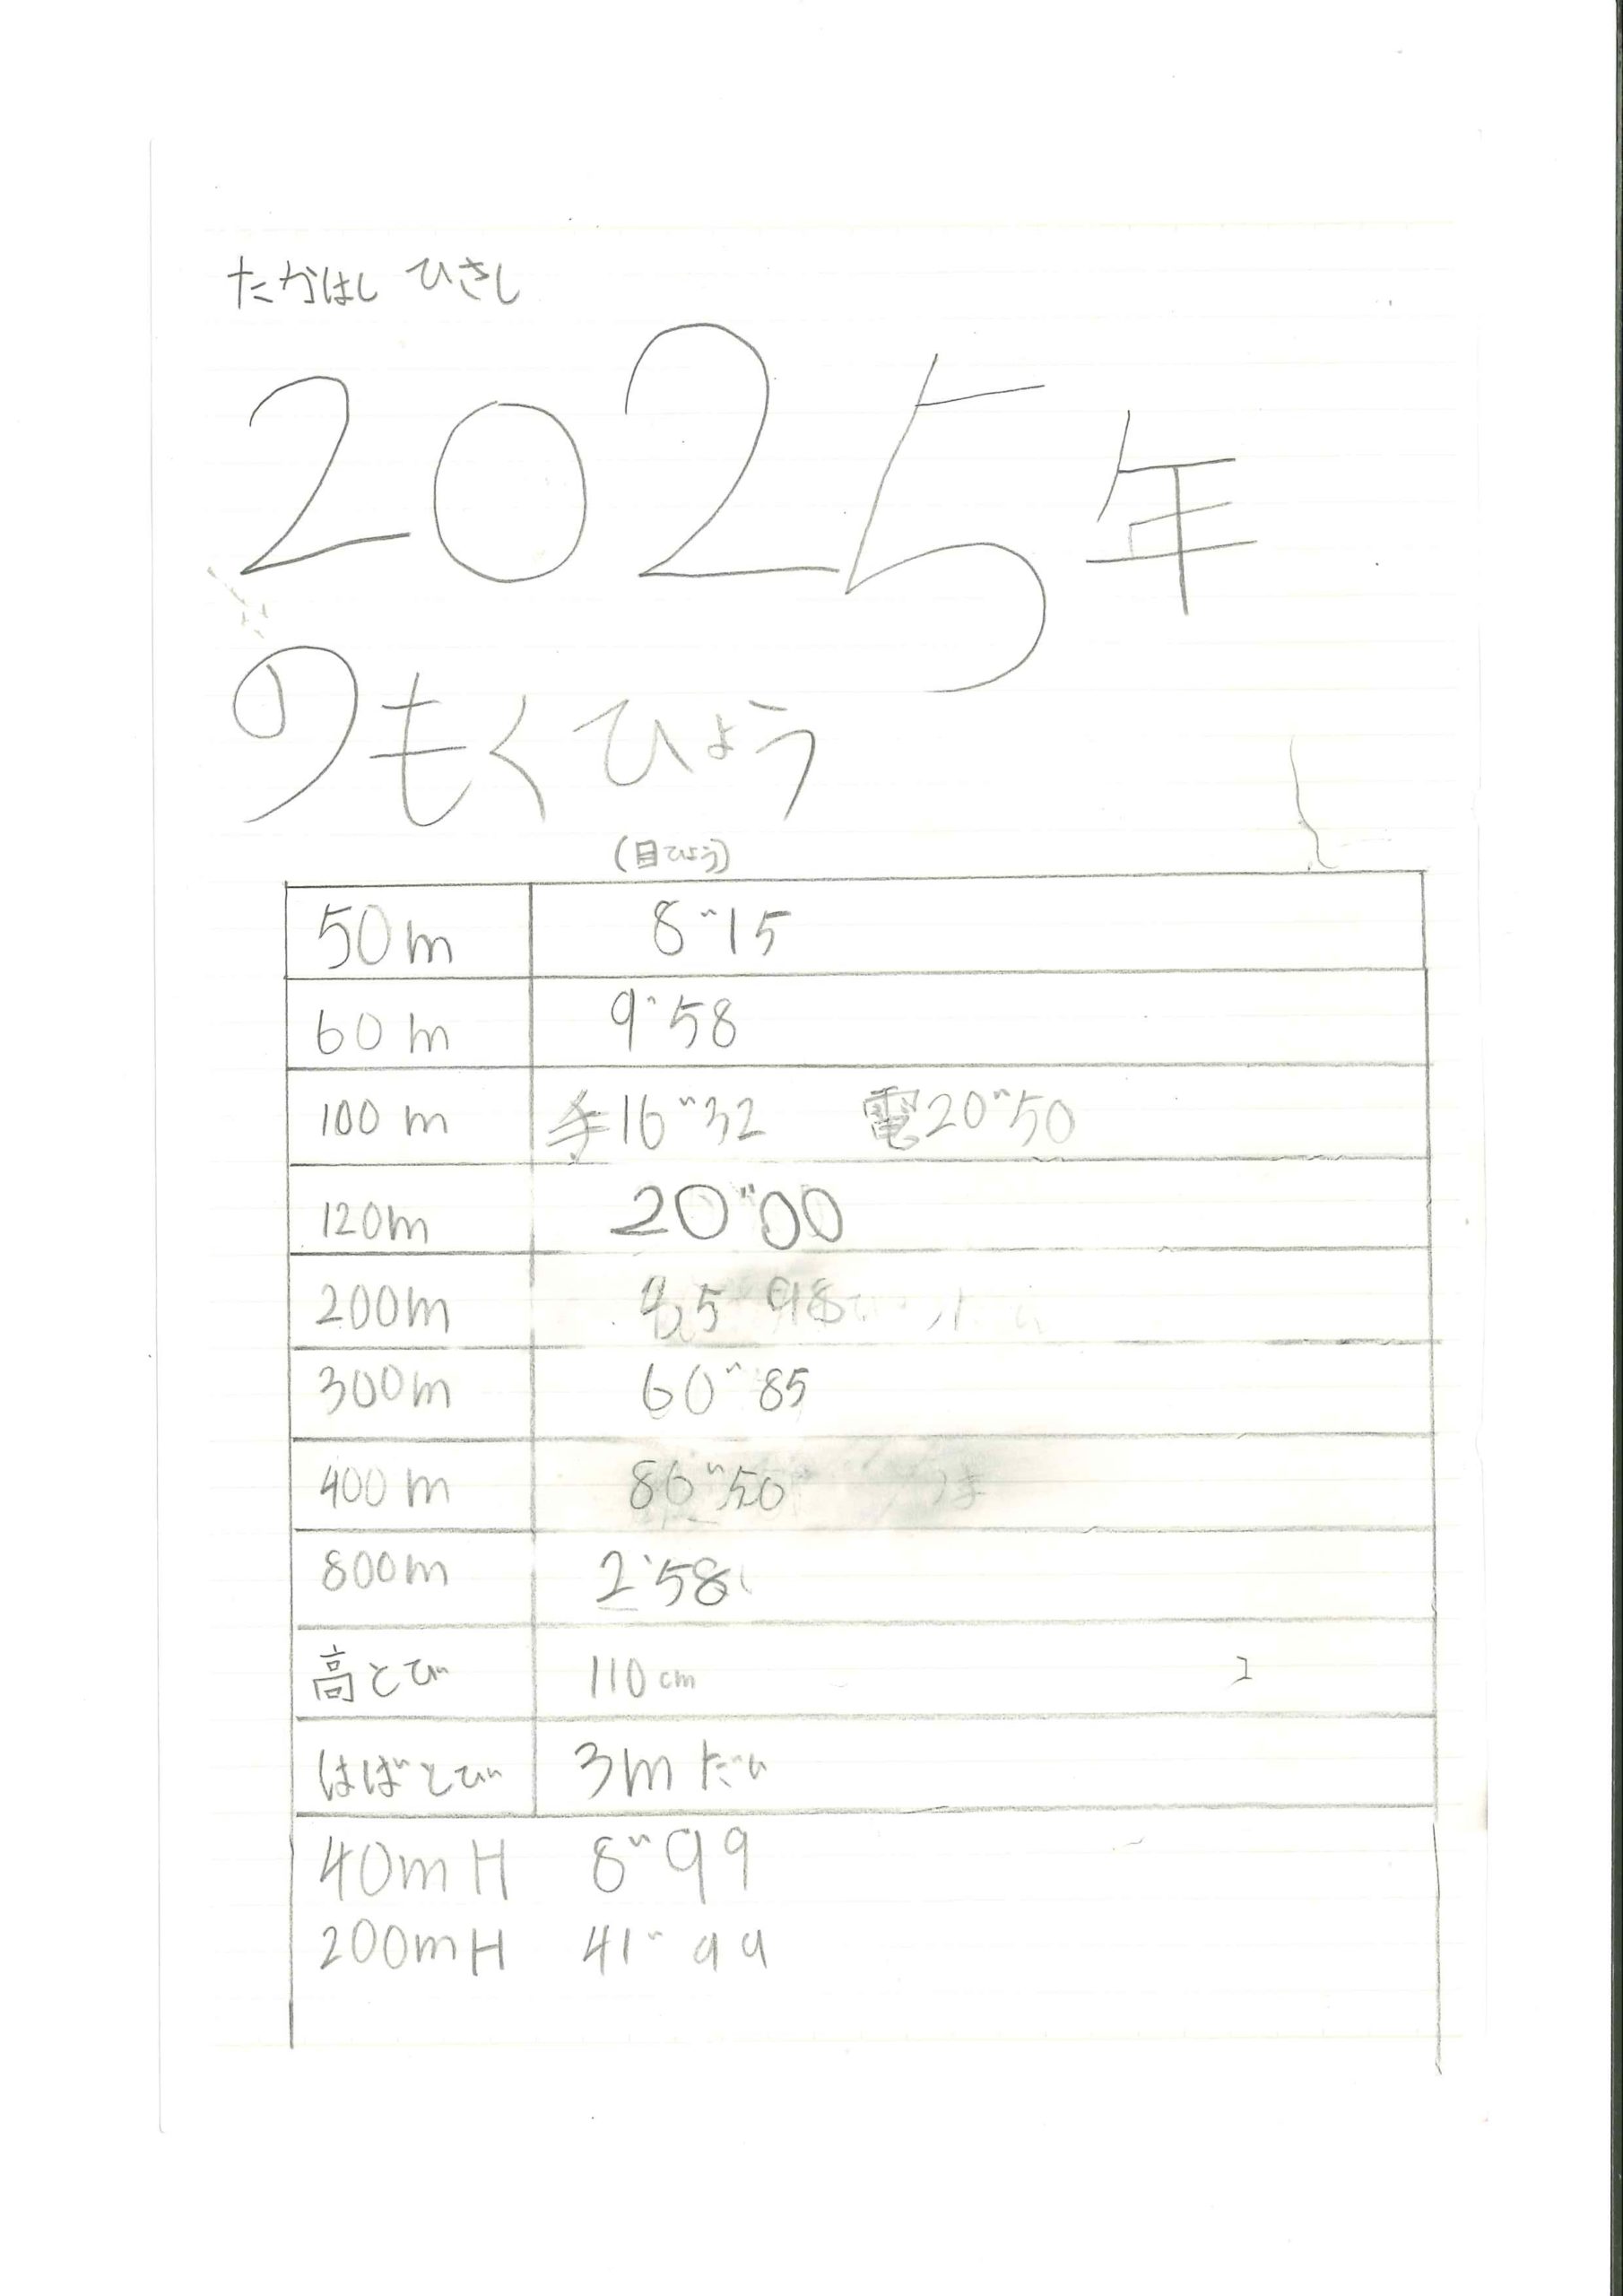 たかはし ひさし
2025年
のもくひょう
(目ひょう)
50m 8"15
60m 9"58
100m 手16"32 電20"50
120m 20"00
200m 35"98
300m 60"85
400m 86"50
800m 2'58
高とび 110cm
はばとび 3mだい
40mH 8"99
200mH 41"99